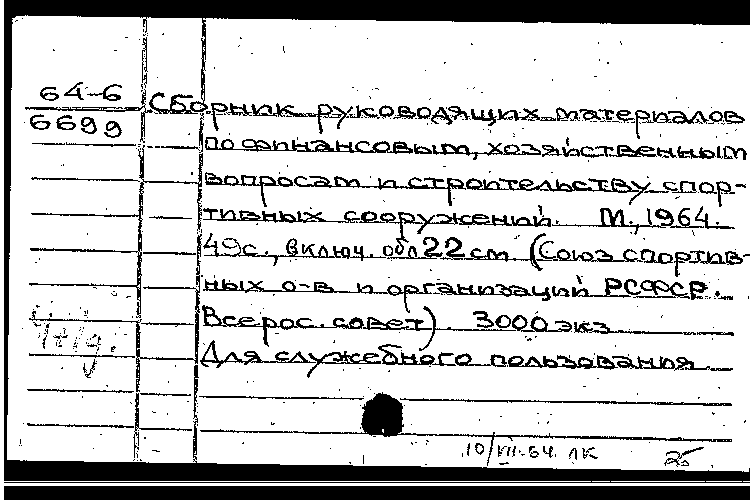 64-6
6699
Сборник руководящих материалов
по финансовым, хозяйственным
вопросам и строительству спор-
тивных сооружений. М., 1964.
49с., включ. обл 22 см (Союз спортив-
ных о-в и организаций РСФСР.
Всерос. совет). 3000 экз
Для служебного пользования
10/VII-64 ЛК
25